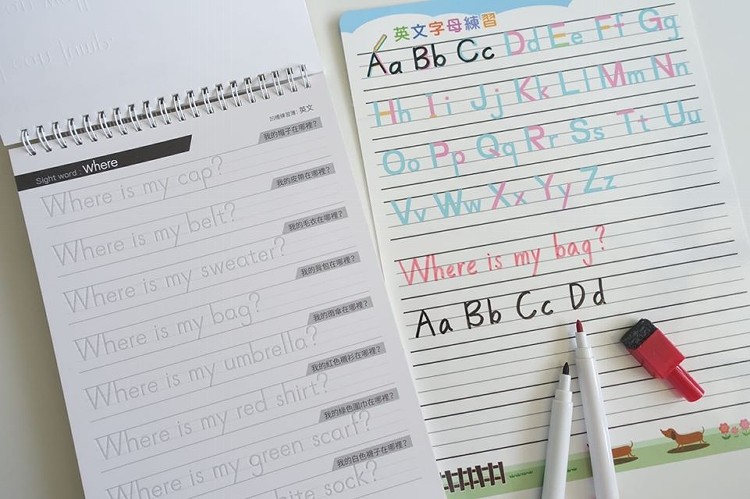 凹槽練習簿: 英文
Sight word : Where
我的帽子在哪裡?
Where is my cap?
我的皮帶在哪裡?
Where is my belt?
我的毛衣在哪裡?
Where is my sweater?
我的背包在哪裡?
Where is my bag?
我的雨傘在哪裡?
Where is my umbrella?
我的紅色襯衫在哪裡?
Where is my red shirt?
我的綠色圍巾在哪裡?
Where is my green scarf?
我的白色襪子在哪裡?
white sock?
英文字母練習
Aa Bb Cc Dd Ee Ff Gg
Hh Ii Jj Kk Ll Mm Nn
Oo Pp Qq Rr Ss Tt Uu
Vv Ww Xx Yy Zz
Where is my bag?
Aa Bb Cc Dd